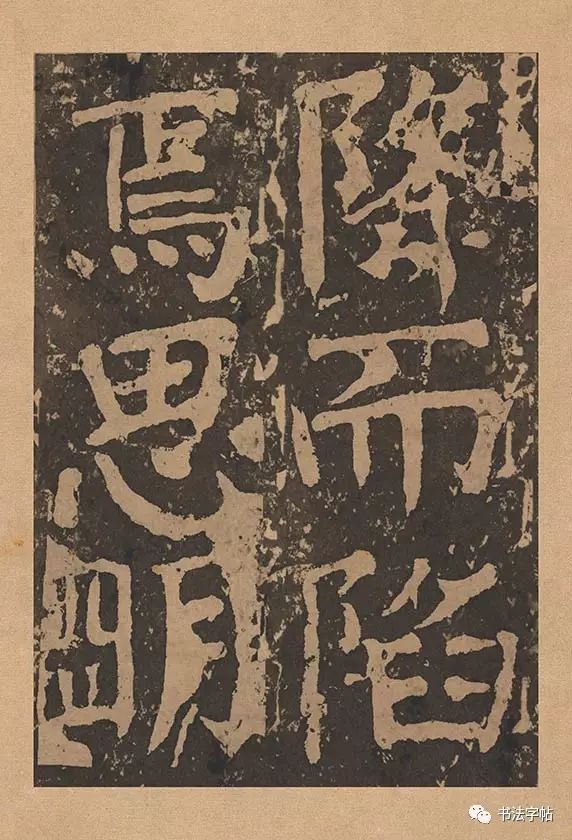 而陷
焉思明
書法字帖